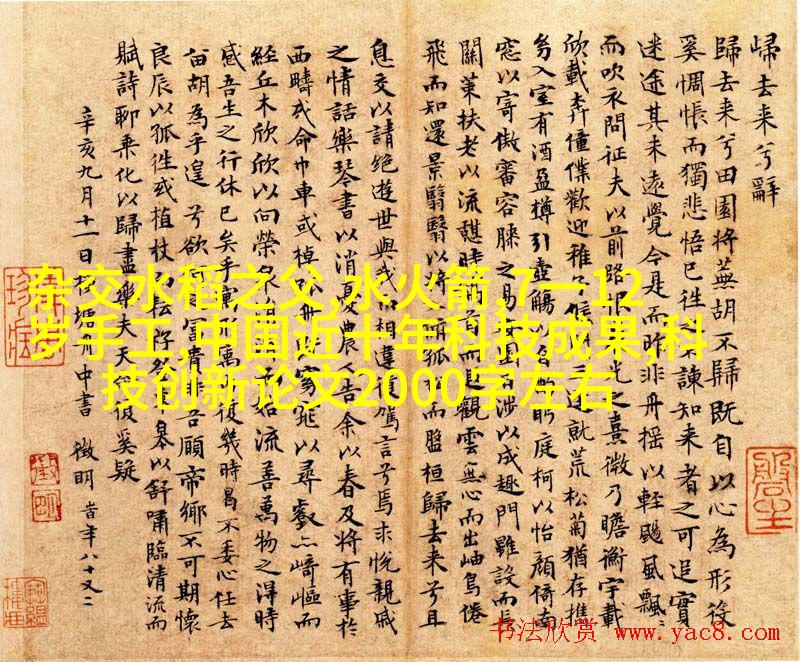 歸去来兮辭
歸去来兮田園將蕪胡不歸既自以心為形役
奚惆悵而獨悲悟已徃之不諫知来者之可追實
迷途其未遠覺今是而昨非舟摇以輕颺風飄〻
而吹衣問征夫以前路光之熹微乃瞻衡宇載
欣載奔僮僕歡迎稚三逕就荒松菊猶存携
幼入室有酒盈樽引壺觴以眄庭柯以怡顏倚南
窓以寄傲審容膝之易安日涉以成趣門雖設而長
關策扶老以流憩時首而遐觀雲無心而出岫鳥倦
飛而知還景翳翳以將孤而盤桓歸去来兮且
息交以請絶遊世與我以相違駕言兮焉求悅親戚
之情話樂琴書以消憂農人告余以春及將有事於
西疇或命巾車或棹舟窕以尋壑亦崎嶇而
經丘木欣欣以向榮始流善萬物之得時
感吾生之行休已矣乎寓復幾時曷不委心任去
留胡為乎遑兮欲富貴吾願帝鄉不可期懷
良辰以孤徃或植杖而耘皋以舒嘯臨清流而
賦詩聊乘化以歸盡樂夫天復奚疑
辛亥九月十一日塘舟中書 徵明 時年八十又二
杂交水稻之父,水火箭,7一12
岁手工,中国近十年科技成果,科
技创新论文2000字左右
书法欣赏 www.yac8.com